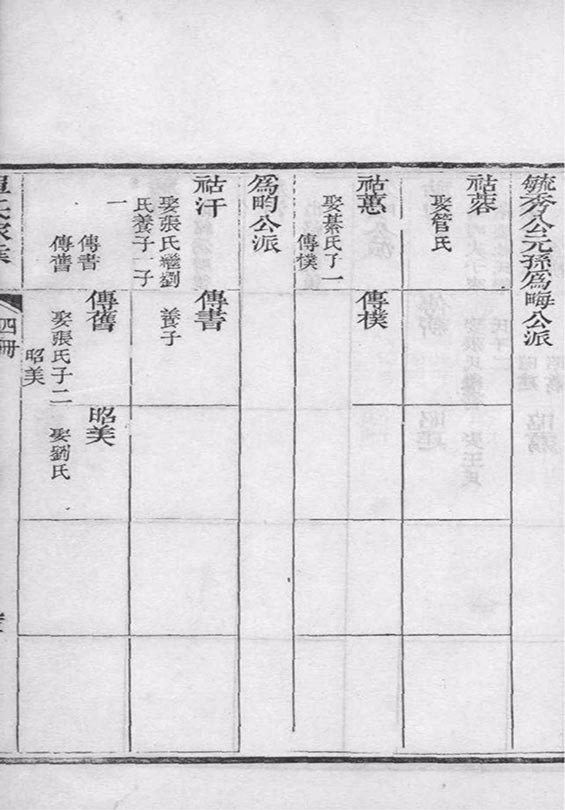 毓秀公元孫為晦公派
祜蓉
娶管氏
祜蕙
娶綦氏子一
傳樸
傳樸
為昀公派
祜汗
娶張氏繼劉
氏養子一子
一
傳書
傳舊
傳書
養子
傳舊
娶張氏子二
昭美
昭美
娶劉氏
四冊